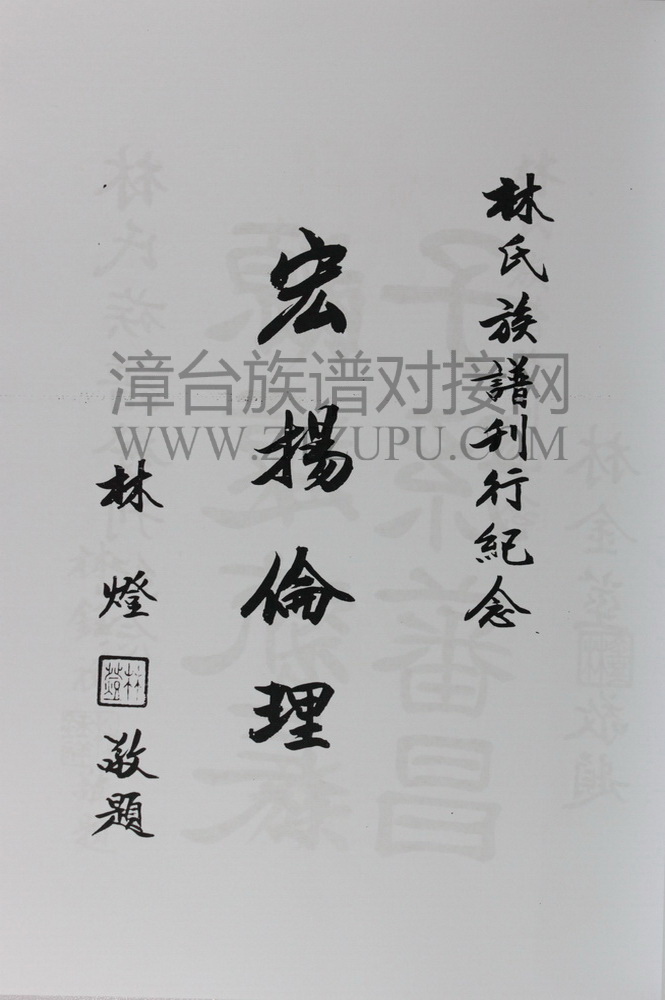 林氏族譜刊行紀念
宏揚倫理
林燈
林燈
敬題
漳台族谱对接网
WWW.ZTZUPU.COM